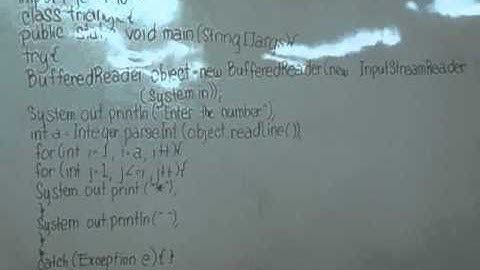 class triangle{
public static void main(String[]args){
try{
BufferedReader object=new BufferedReader(new InputStreamReader
(System.in));
System out.println("Enter the number");
int a=Integer parseInt(object.readLine());
for(int i=1, i<=a, i++){
for(int j=1, j<=i, j++){
System out print("*");
}
System out.println(" ");
}
catch(Exception e){}